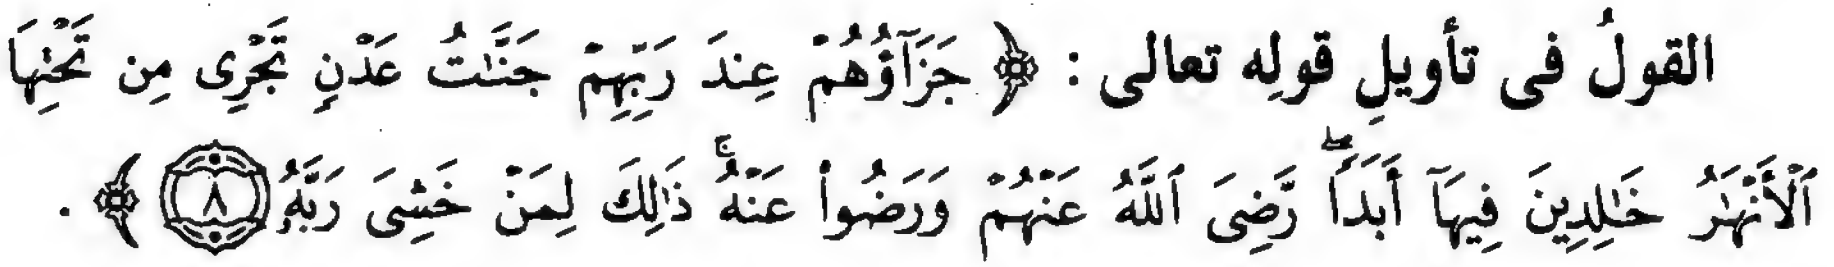 القولُ فى تأويلِ قولِه تعالى : ﴿ جَزَآؤُهُمْ عِندَ رَبِّهِمْ جَنَّٰتُ عَدْنٍ تَجْرِى مِن تَحْتِهَا
ٱلْأَنْهَٰرُ خَٰلِدِينَ فِيهَآ أَبَدًاۖ رَّضِىَ ٱللَّهُ عَنْهُمْ وَرَضُوا۟ عَنْهُۚ ذَٰلِكَ لِمَنْ خَشِىَ رَبَّهُۥ ٨ ﴾ .